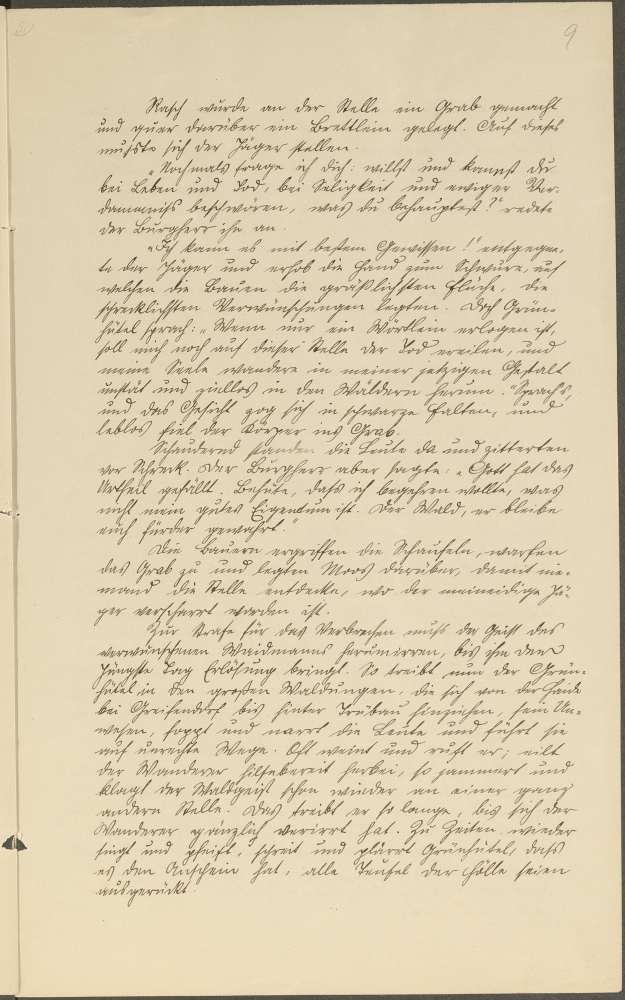 9
Rasch wurde an der Stelle ein Grab gemacht
und quer darüber ein Brettlein gelegt. Auf dieses
mußte sich der Jäger stellen.
„Nochmals frage ich dich: willst und kannst du
bei Leben und Tod, bei Seligkeit und ewiger Ver-
dammniß beschwören, was du behauptest?" redete
der Burgherr ihn an.
„Ich kann es mit bestem Gewissen!" entgegne-
te der Jäger und erhob die Hand zum Schwure, auf
welchen die Bauern die gräßlichsten Flüche, die
schrecklichsten Verwünschungen legten. Doch Grün-
hütel sprach: „Wenn nur ein Wörtlein erlogen ist,
soll mich noch auf dieser Stelle der Tod ereilen, und
meine Seele wandere in meiner jetzigen Gestalt
unstät und ziellos in den Wäldern herum." Sprach's,
und das Gesicht zog sich in schwarze Falten, und
leblos fiel der Körper ins Grab.
Schaudernd standen die Leute da und zitterten
vor Schreck. Der Burgherr aber sagte: „Gott hat das
Urtheil gefällt. Behüte, daß ich begehren wollte, was
nicht mein gutes Eigentum ist. Der Wald, er bleibe
euch fürder gewahrt."
Die Bauern ergriffen die Schaufeln, warfen
das Grab zu und legten Moos darüber, damit nie-
mand die Stelle entdecke, wo der meineidige Jä-
ger verscharrt worden ist.
Zur Strafe für das Verbrechen muß der Geist des
verwünschenen Waidmanns herumirren, bis ihm der
Jüngste Tag Erlösung bringt. So treibt nun der Grün-
hütel in den großen Waldungen, die sich von der Haide
bei Greifendorf bis hinter Trübau hinziehen, sein Un-
wesen, foppt und narrt die Leute und führt sie
auf unrechte Wege. Oft weint und ruft er; eilt
der Wanderer hilfsbereit herbei, so jammert und
klagt der Waldgeist schon wieder an einer ganz
andern Stelle. Das treibt er so lange, bis sich der
Wanderer gänzlich verirrt hat. Zu Zeiten wieder
singt und pfeift, schreit und plärrt Grünhütel, daß
es den Anschein hat, alle Teufel der Hölle seien
ausgerückt.